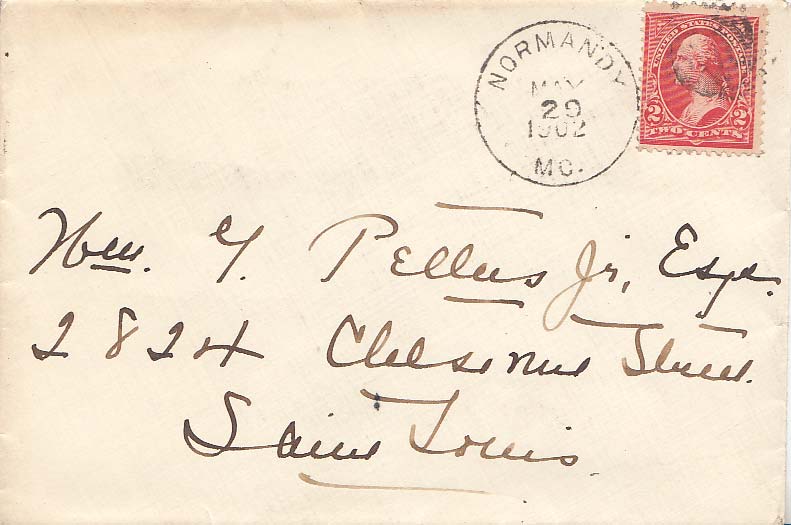 NORMANDY
MAY
29
1902
MO.
UNITED STATES POSTAGE
2 2
TWO CENTS
Wm. G. Pettus Jr, Esqr.
2824 Chestnut Street.
Saint Louis